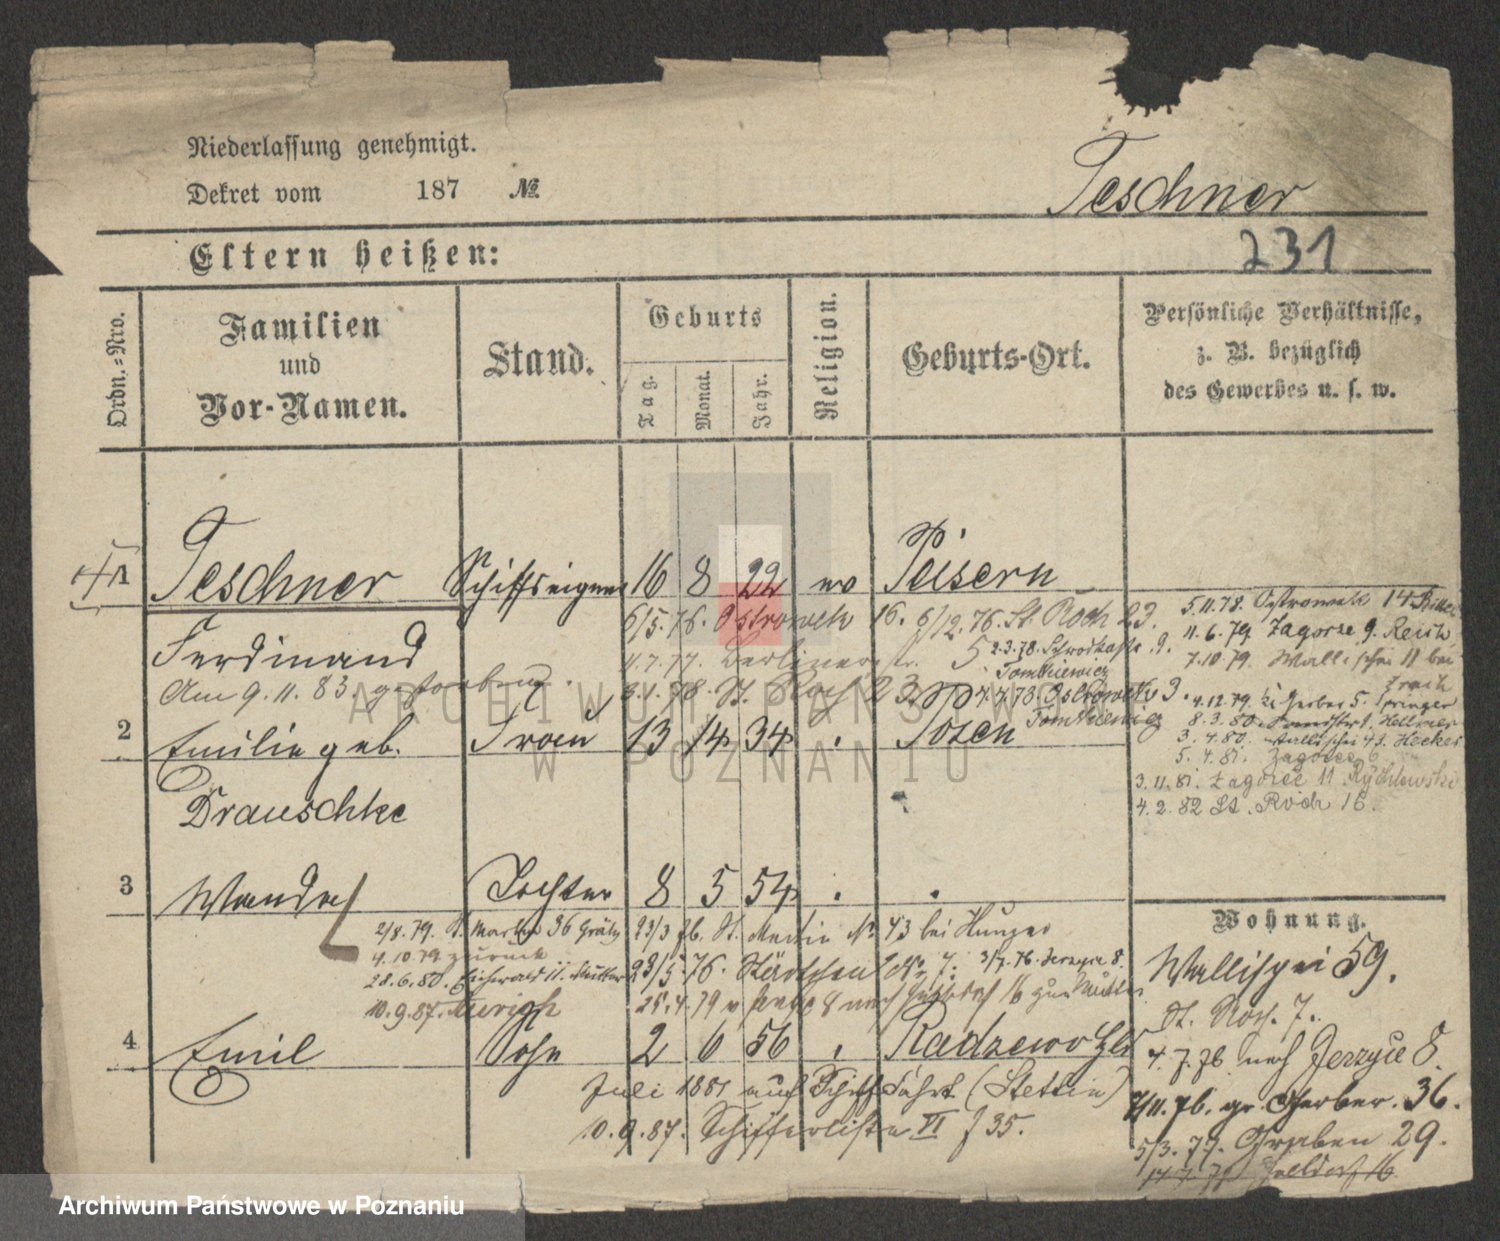 Niederlassung genehmigt.
Dekret vom 187 №
Teschner
Eltern heißen:
231
Ordn.-Nro.
Familien
und
Vor-Namen.
Stand.
Geburts
Tag.
Monat.
Jahr.
Religion.
Geburts-Ort.
Persönliche Verhältnisse,
z. B. bezüglich
des Gewerbes u. s. w.
1 Teschner Schiffseigner 16 8 22 ev Peisern
6/5.76. Ostrowek 16. 6/12.76. St. Roch 23.
Ferdinand
4.7.77. Berliner
Am 9.11.83 gestorben.
3.1.78. St. Roch 23.
7.4.78. Ostrowek 9.
Tomkiewicz
2 Emilie geb. Frau 13 14 34 Posen
Drauschke
5.11.78. Ostrowek 14
11.6.79 Zagorze 9.
7.10.79. Wallischei 11 bei
4.12.79. Gerber 5. Springer
8.3.80.
3.4.80. Wallischei Hecker
5.4.81. Zagorze 6
3.11.81. Zagorze 11 Rychlewski
4.2.82 St. Roch 16.
3 Wanda Tochter 8 5 54
2/8.79. St. Martin 36 Grätz
4.10.79 zurück
28.6.80. Eichwald Mutter
10.9.87.
23/3 76. St. Martin № 43 bei Hunger
23/5.76. Städtchen № 7. 3/7.76. Jerzyce 8.
25.4.79 v. 8 nach 16 zur Mutter
4 Emil Sohn 2 6 56 Radzewo Hld
Juli 1881 auf Schiffahrt (Stettin)
10.9.87. Schifferliste VI J 35.
Wohnung.
Wallischei 59.
St. Roch. 7.
4.7.76 nach Jerzyce 8.
7/11.76. gr. Gerber. 36.
5/3.77. Graben 29.
ARCHIWUM PAŃSTWOWE
W POZNANIU
Archiwum Państwowe w Poznaniu